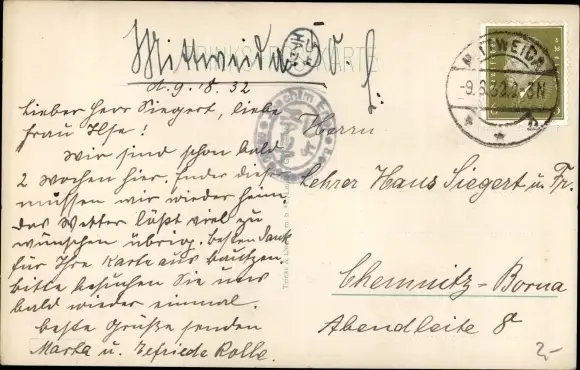 Mittweida
d. 9. 8. 32
Lieber Herr Siegert, liebe
Frau Ilse!
Wir sind schon bald
2 Wochen hier. Ende dieser
müssen wir wieder heim.
Das Wetter läßt viel zu
wünschen übrig. Besten Dank
für Ihre Karte aus Bautzen.
bitte besuchen Sie uns
bald wieder einmal.
beste Grüße senden
Marta u. Elfriede Rolle.
MITTWEIDA
-9.8.32.2-3N
Herrn
Lehrer Hans Siegert u. Fr.
Chemnitz-Borna
Abendleite 8
2,-